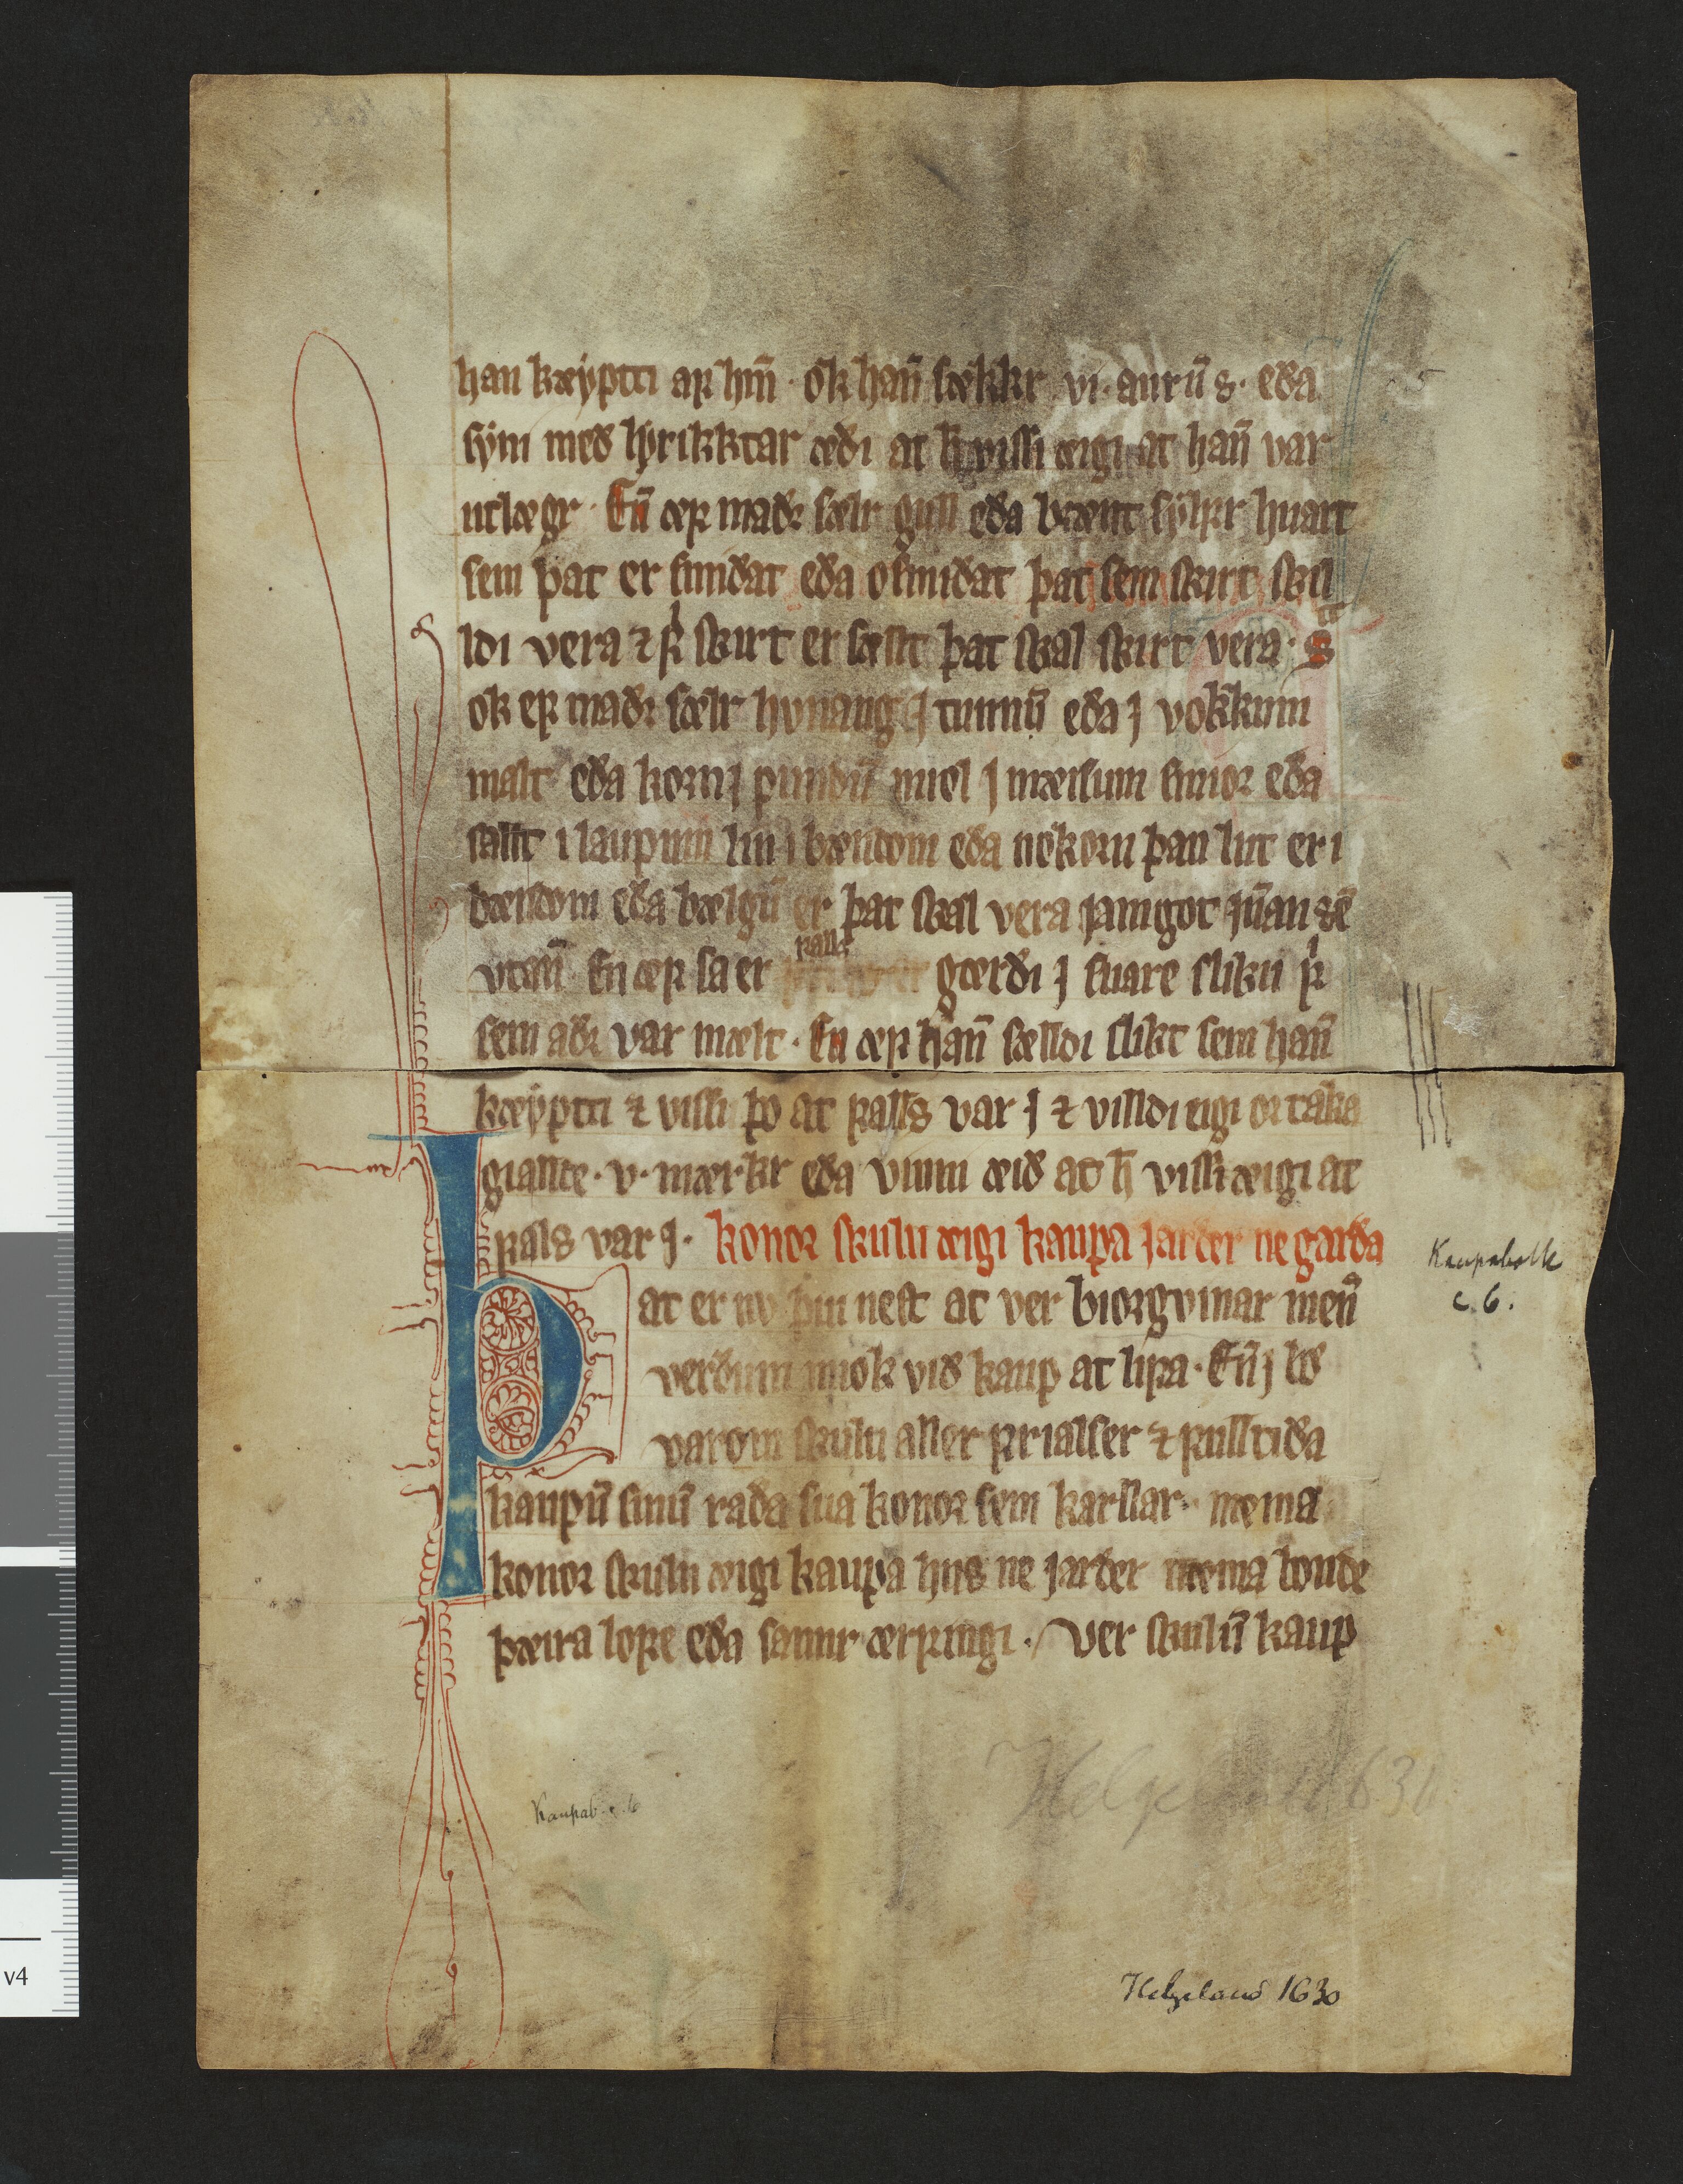 han kæyptti aꝼ hm̄ · ok han̄ sækkr vi · aurū s · eða
sẏni með lẏrikktar æiði at h̄ vissi æigi at han̄ var
utlægr · En̄ æꝼ maðr sælr gull eða brænt sẏlꝼr huart
sem þat er smiðat eða osmiðat þat sem skirt skil
ldi vera ⁊ ꝼ̍ skirt er sællt þat skal skirt vera · S
ok eꝼ maðr sælr hvnang j tunnū eða j vokkum
malt eða korn j pundū miol j mæisum smior eða
sallt i laupum lin i bændom eða nokorn þan lut er i
bændom eða bælgū er þat skal vera jamgot jn̄an sē
vtan̄ En æꝼ sa er ꝼalls gærði j suare sliku ꝼ̍
sem aðr var mælt · En æꝼ han̄ sælldi slikt sem han̄
kæypti ⁊ vissi þo at ꝼalls var j ⁊ villdi eigi or taka
giallde · v · mærkr eða vinni æið at h̄ vissi æigi at
ꝼals var j · konor skulu æigi kaupa jarðer ne garða
Þat er nv þui nest at ver biorgvinar men̄
verðum miok við kaup at liꝼa · En̄ j bø
varom skulu aller ꝼrialser ⁊ ꝼulltiða
kaupū sinū raða sua konor sem karllar · mema
konor skulu æigi kaupa hus ne jarðer næma bonde
þæira loꝼe eða sannr ærꝼingi · Ver skulū kaup
Kaupabolk
c. 6.
Kaupab. c. 6
Helgeland 1630
Helgeland 1630